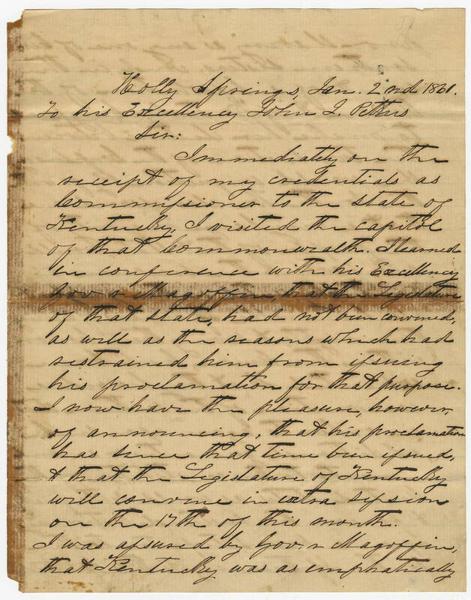 Holly Springs, Jan. 2nd 1861.
To his Excellency John J. Pettus
Sir:
Immediately on the
receipt of my credentials as
Commissioner to the state of
Kentucky, I visited the capitol
of that Commonwealth. I learned
in conference with his Excellency
Gov. Magoffin, that the Legislature
of that state, had not been convened,
as well as the reasons which had
restrained him from issuing
his proclamation for that purpose.
I now have the pleasure, however,
of announcing, that his proclamation
has since that time been issued,
& that the Legislature of Kentucky
will convene in extra session
on the 17th of this month.
I was assured by Gov. Magoffin,
that Kentucky was as emphatically